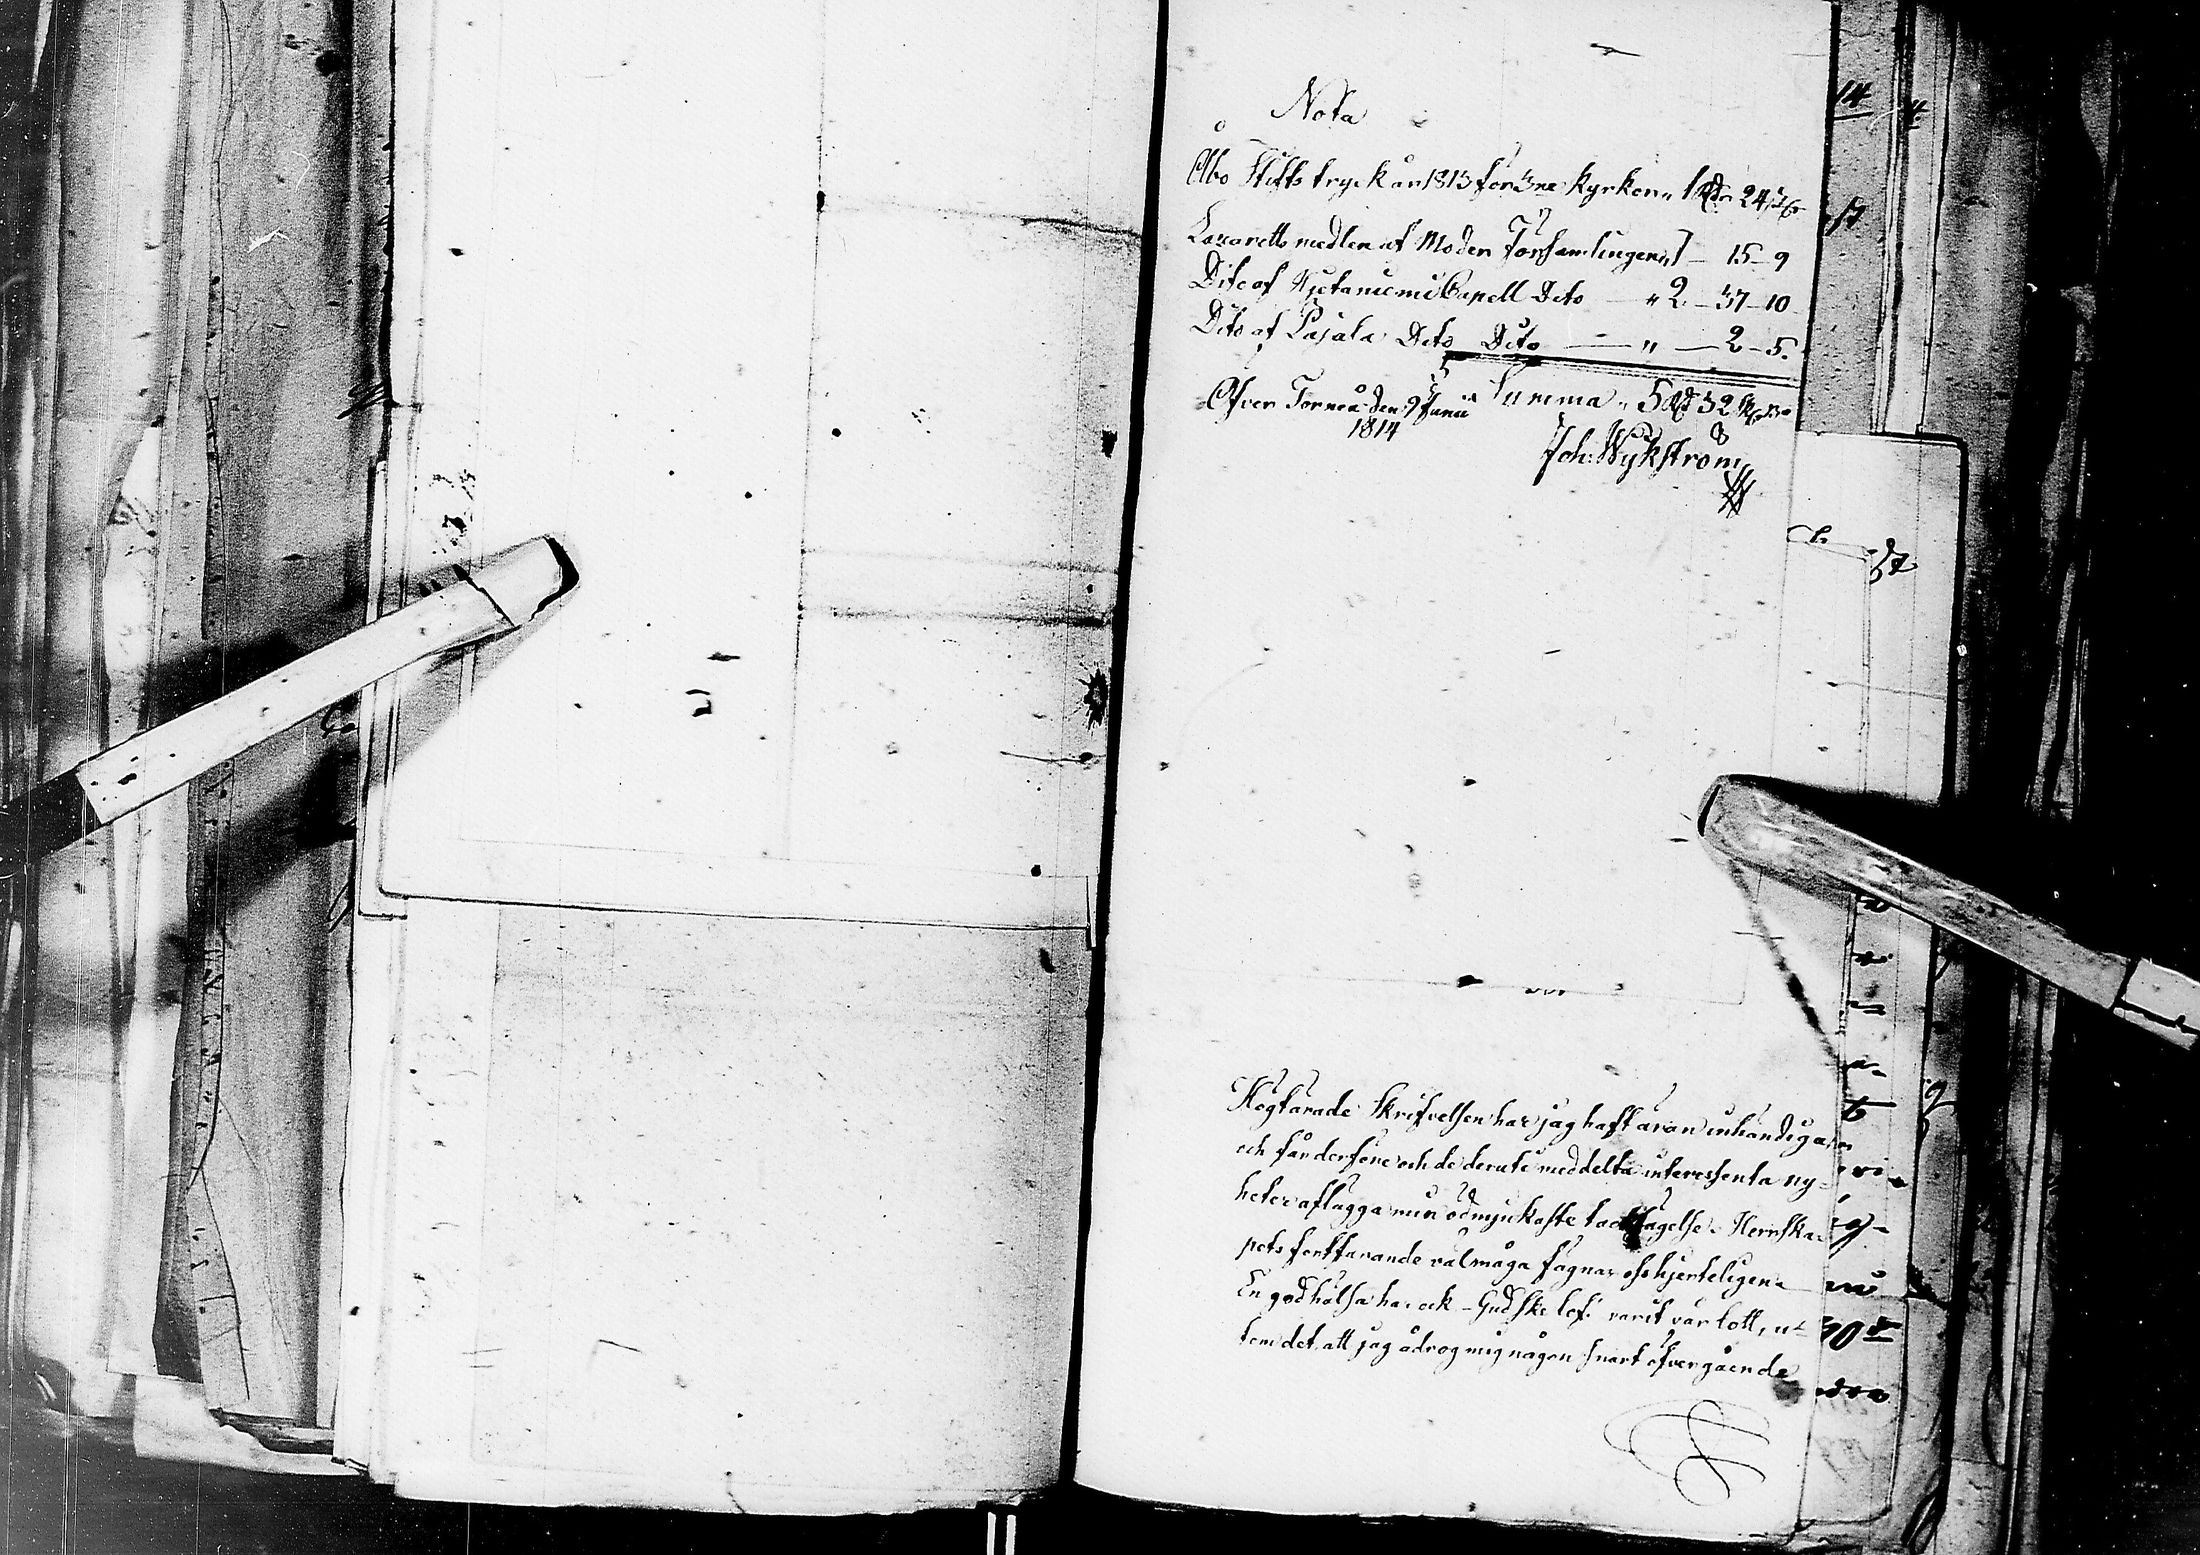 Nota
Åbo Stifts tryck år 1813 för 3ne kyrkor „ 1 Rd. 24
Lazaretts medlen af Moder Församlingen „ 1 – 15 – 9
Dito af Hjetaniemi Capell Dito — „ 2 – 37 – 10
Dito af Pajala Dito Dito — „ — 2 – 5.
Summa „ 5 Rd 32
Öfver Torneå den 9 Junii
1814
Joh: Wykström
Högtärade Skrifvelsen har jag haft äran inhändiga,
och får derföre och de deruti meddelta interessenta ny-
heter aflägga min ödmjukaste tacksägelse. Herrska-
pets fortfarande välmåga fägnar oss hjerteligen.
En god hälsa har ock – Gud ske lof! varit vår lott, u-
tom det, att jag ådrog mig någon snart öfvergående